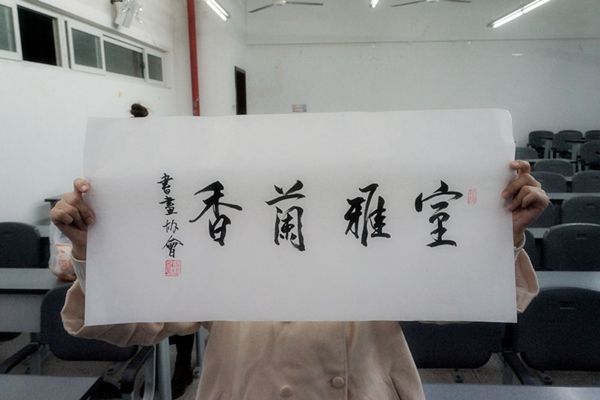 室雅蘭香
書畫協會